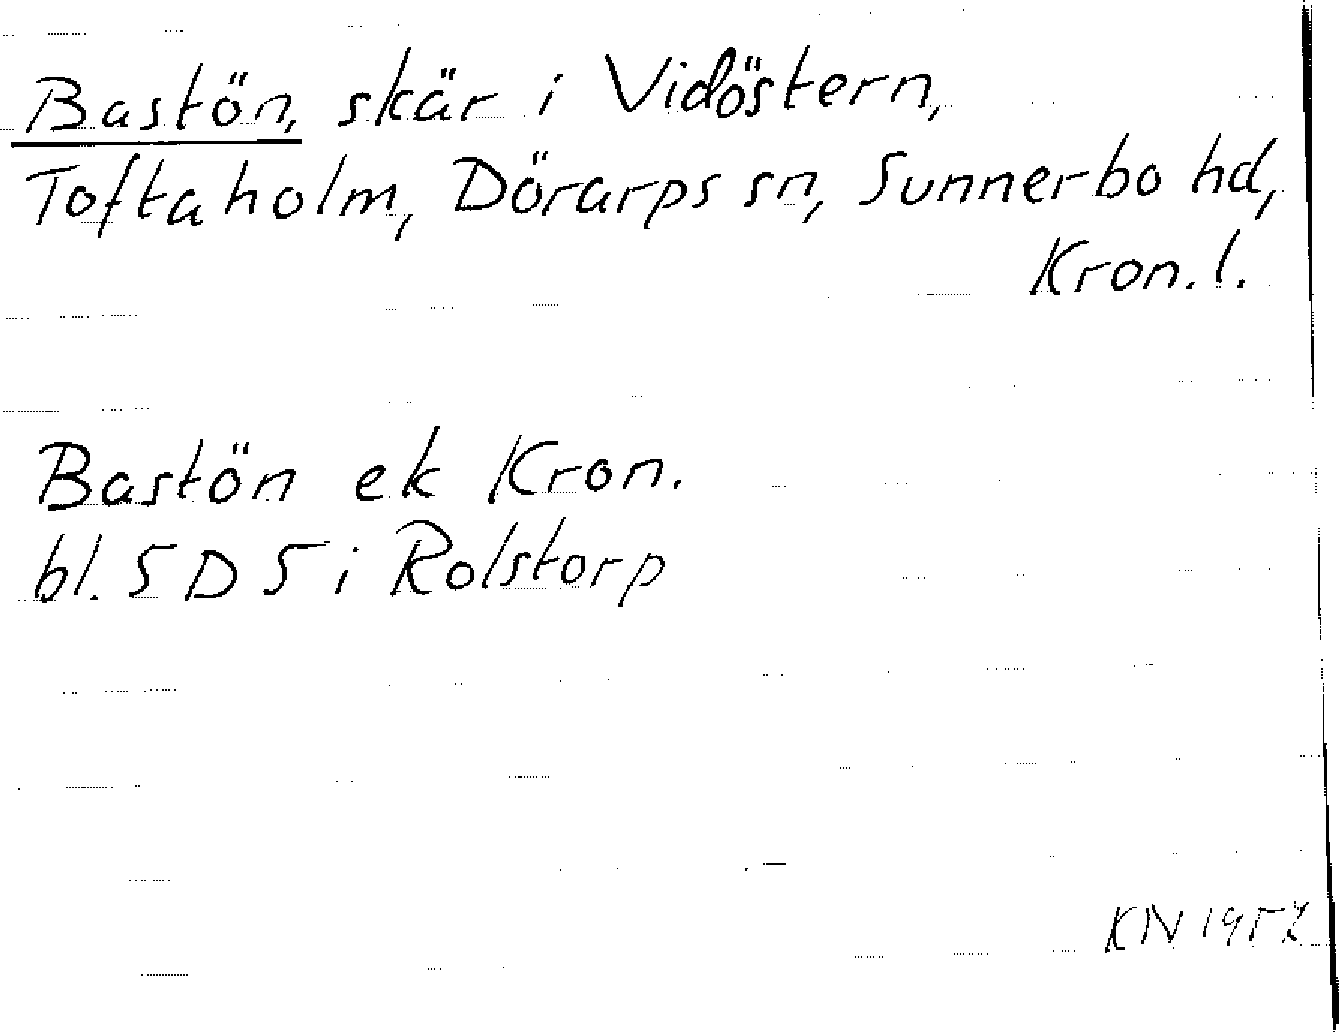 Bastön, skär i Vidöstern,
Toftaholm, Dörarps sn, Sunnerbo hd,
Kron. l.
Bastön ek Kron.
bl. 5 D 5 i Rolstorp
KN 1957